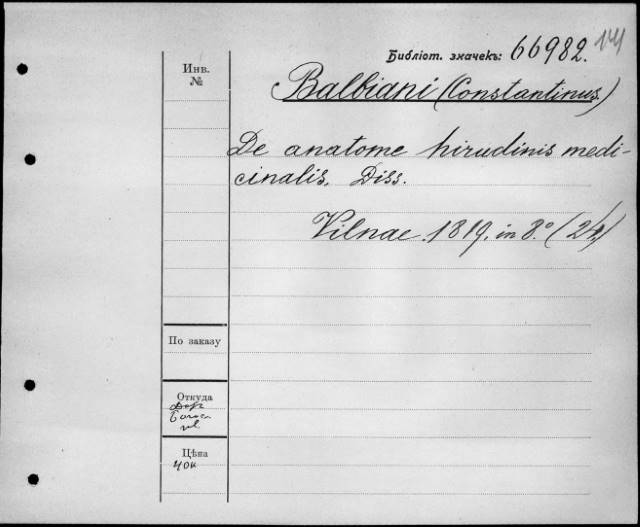 14
Библіот. значекъ: 66982.
Инв.
№
Balbiani (Constantinus.)
De anatome hirudinis medi-
cinalis. Diss.
Vilnae. 1819. in 8.° (24)
По заказу
Откуда
Цѣна
40к